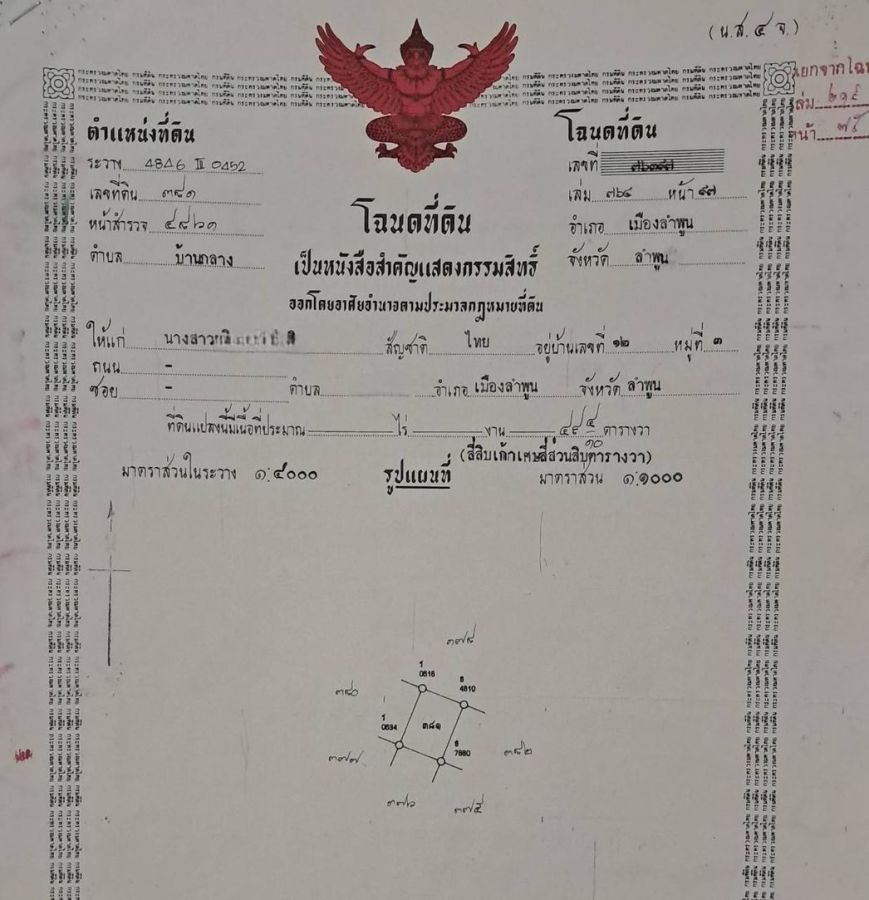 (น.ส. ๔ จ.)
เล่ม ๒๑๕
ตำแหน่งที่ดิน
ระวาง 4846 III 0452
เลขที่ดิน ๓๘๑
หน้าสำรวจ ๔๘๖๑
ตำบล บ้านกลาง
โฉนดที่ดิน
เลขที่
เล่ม ๗๖๔ หน้า ๔๗
อำเภอ เมืองลำพูน
จังหวัด ลำพูน
โฉนดที่ดิน
เป็นหนังสือสำคัญแสดงกรรมสิทธิ์
ออกโดยอาศัยอำนาจตามประมวลกฎหมายที่ดิน
ให้แก่ นางสาว สัญชาติ ไทย อยู่บ้านเลขที่ ๑๒ หมู่ที่ ๓
ถนน -
ซอย - ตำบล อำเภอ เมืองลำพูน จังหวัด ลำพูน
ที่ดินแปลงนี้มีเนื้อที่ประมาณ ไร่ งาน ๔๙ ๔/๑๐ ตารางวา
(สี่สิบเก้าเศษสี่ส่วนสิบตารางวา)
มาตราส่วนในระวาง ๑:๔๐๐๐ รูปแผนที่ มาตราส่วน ๑:๑๐๐๐
๓๗๘
๓๘๐
1
0616
8
4810
1
0634
๓๘๑
8
7880
๓๗๗
๓๘๒
๓๗๖
๓๗๕